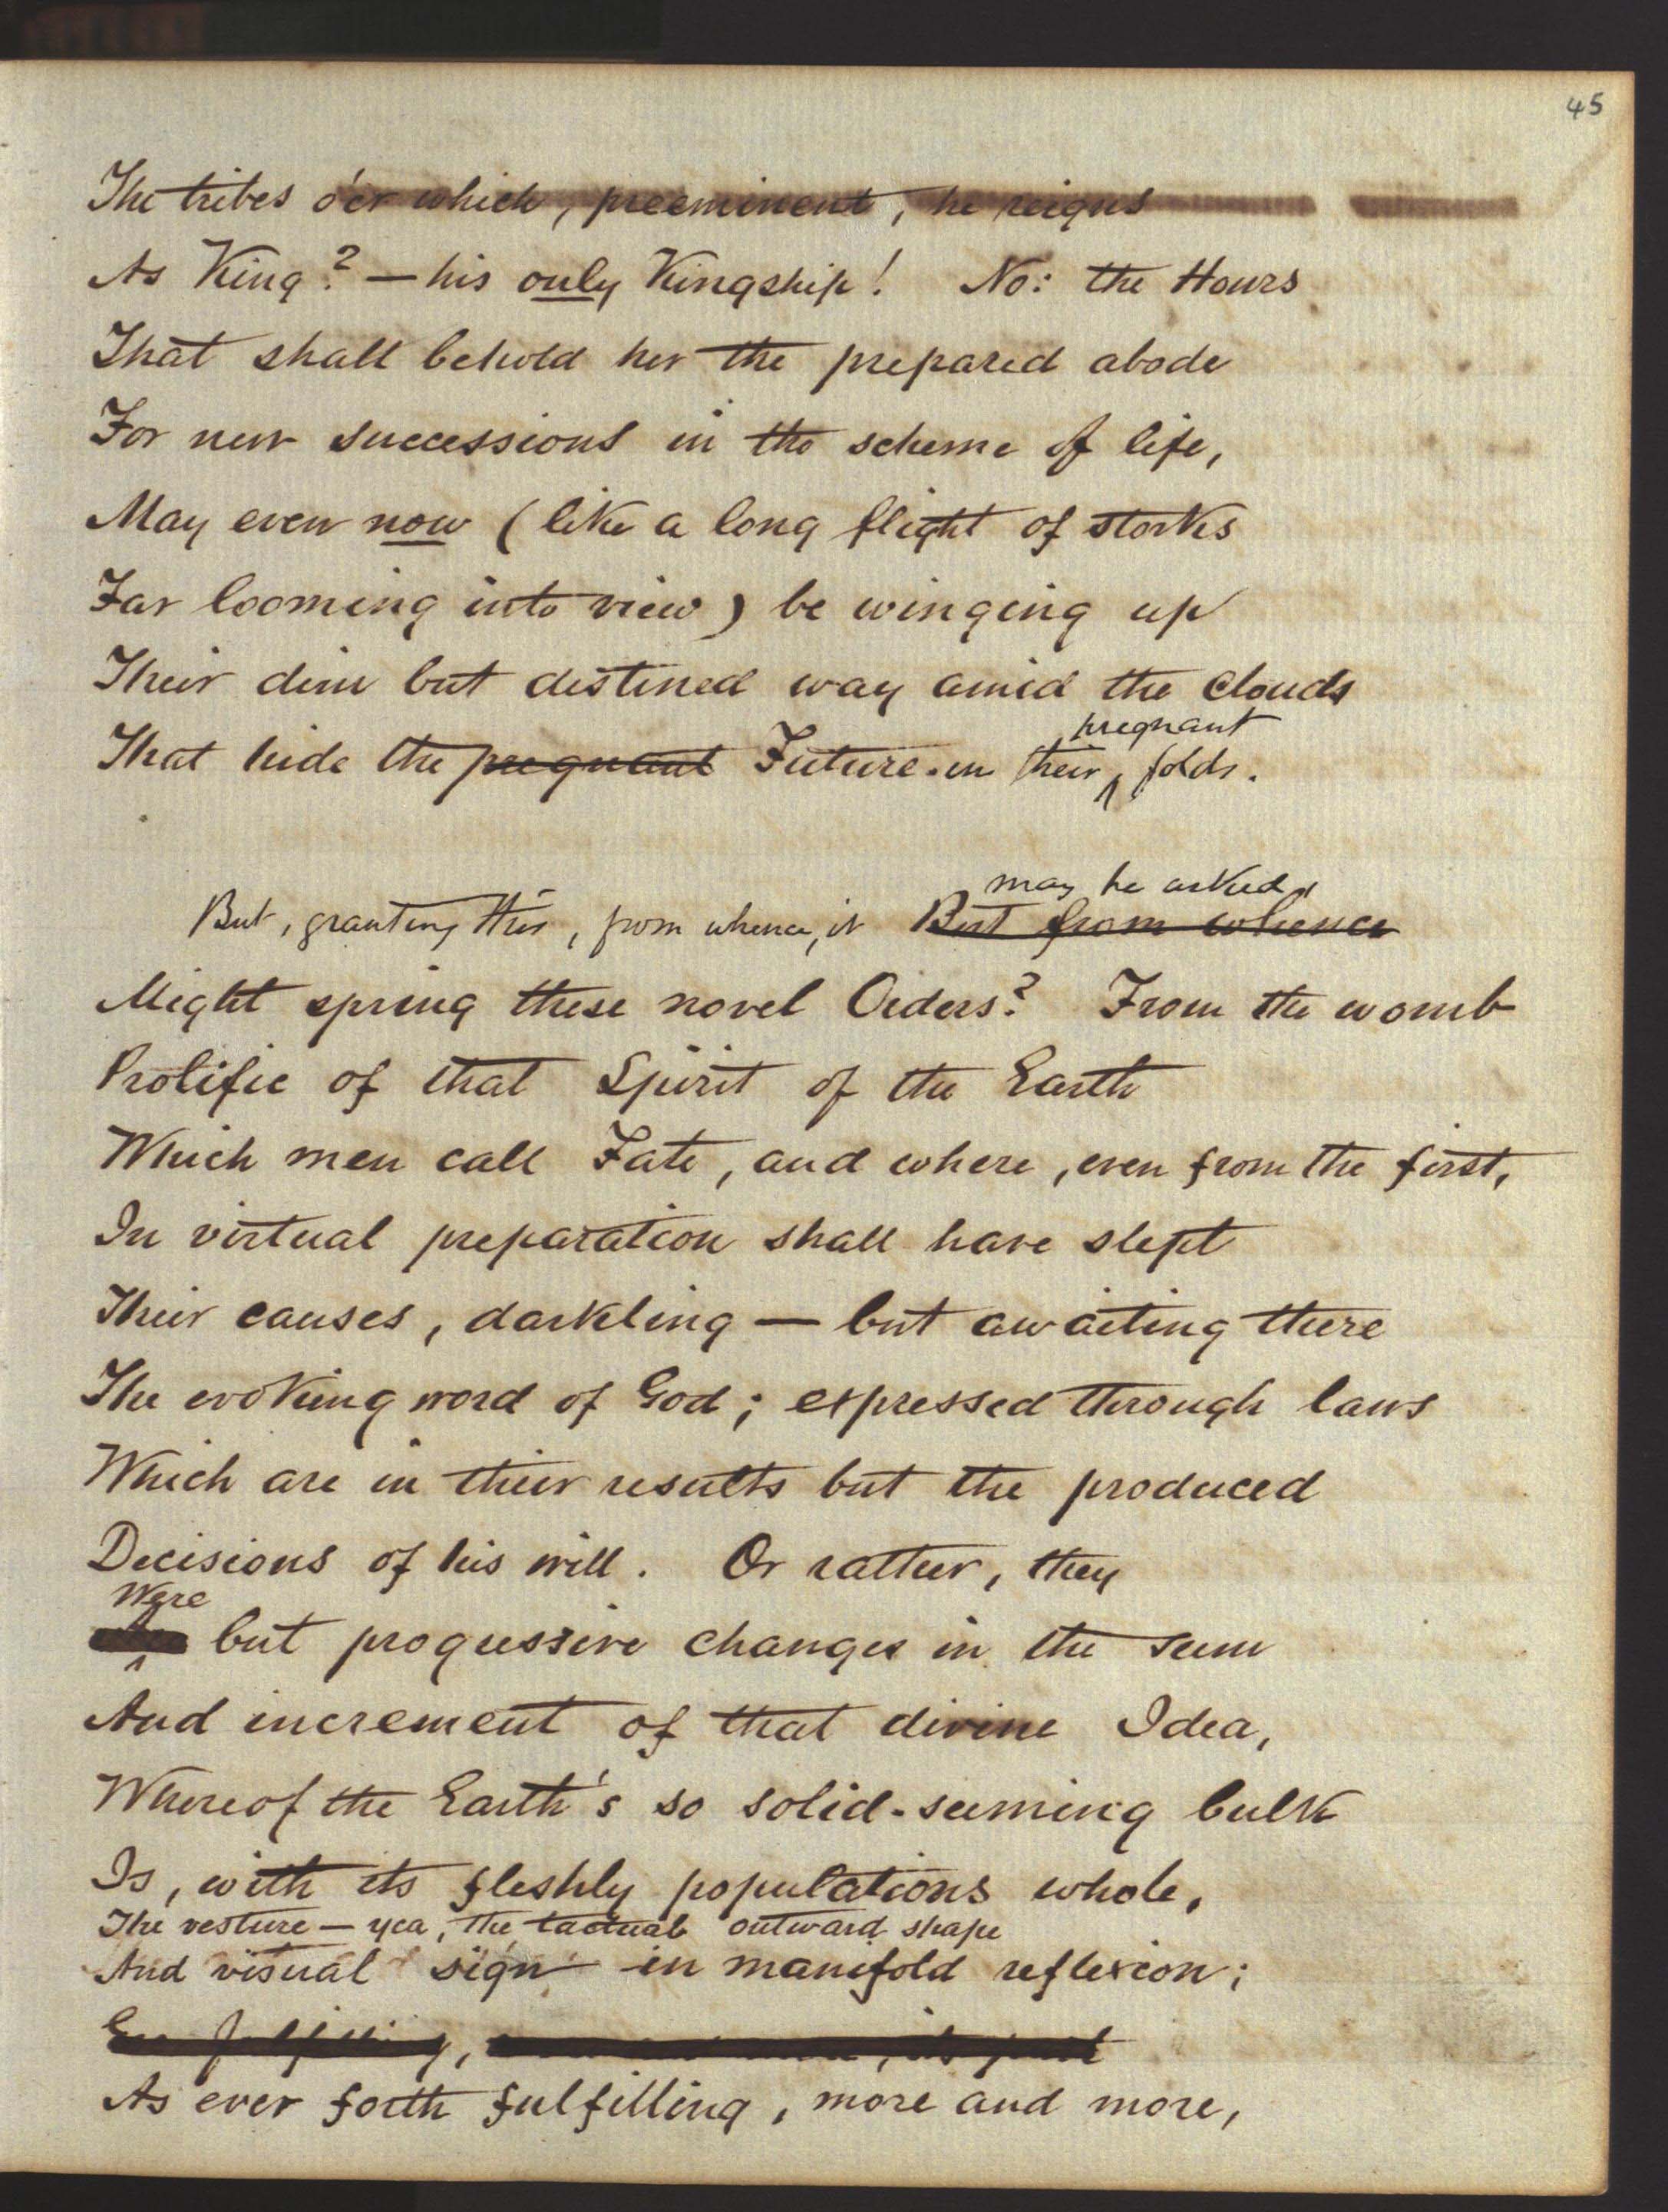 45
The tribes o'er which, preeminent, he reigns
As King? — his only Kingship! No: the Hours
That shall behold her the prepared abode
For new successions in the scheme of life,
May even now (like a long flight of storks
Far looming into view) be winging up
Their dim but destined way amid the clouds
pregnant
That hide the pregnant Future in their folds.
may be asked,
But, granting this, from whence, it But from whence
Might spring these novel Orders? From the womb
Prolific of that Spirit of the Earth
Which men call Fate, and where, even from the first,
In virtual preparation shall have slept
Their causes, darkling — but awaiting there
The evoking word of God; expressed through laws
Which are in their results but the produced
Decisions of his will. Or rather, they
Were
but progressive changes in the sum
And increment of that divine Idea,
Whereof the Earth's so solid-seeming bulk
Is, with its fleshly populations whole,
The vesture — yea, the tactual outward shape
And visual sign in manifold reflexion;
fulfilling, its
As ever forth fulfilling, more and more,